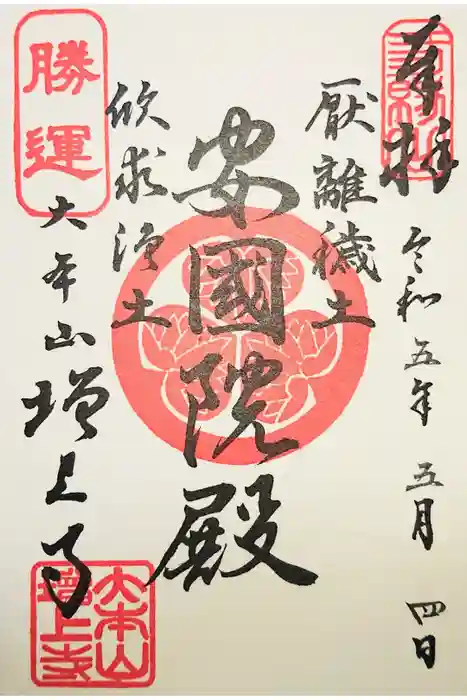 奉拝
令和五年 五月 四日
厭離穢土
安國院殿
欣求浄土
勝運
大本山 増上寺
大本山
増上寺